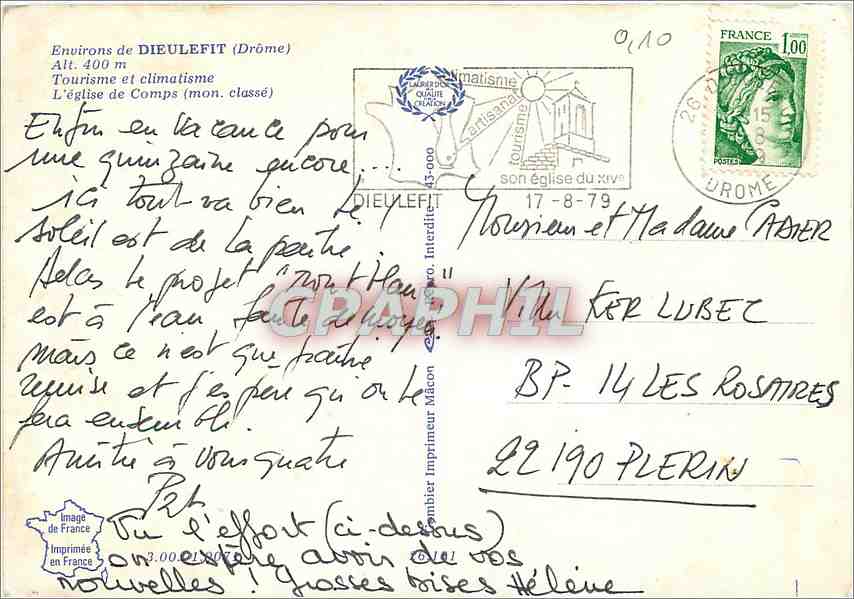 Environs de DIEULEFIT (Drôme)
Alt. 400 m
Tourisme et climatisme
L'église de Comps (mon. classé)
Enfin en vacance pour
une quinzaine encore....
ici tout va bien le
soleil est de la partie.
Helas le projet "Mont Blanc"
est à l'eau faute de moyen.
mais ce n'est que partie
remise et j'espère qu'on le
fera ensemble.
Amitié à vous quatre
Pat
Vu l'effort (ci-dessus)
on espère avoir de vos
nouvelles ! Grosses bises Hélène
Image
de France
Imprimée
en France
3.00.
26.101
Combier Imprimeur Mâcon
Repro. Interdite 43-000
CRAPHIL
0,10
LAURIER D'OR
DE LA
QUALITÉ
CRÉATION
climatisme
artisanat
tourisme
son église du XIVe
DIEULEFIT 17-8-79
26
15
8
DROME
FRANCE 1,00
POSTES
Monsieur et Madame CADIER
Villa KER LUBEC
BP. 14 LES ROSAIRES
22190 PLERIN